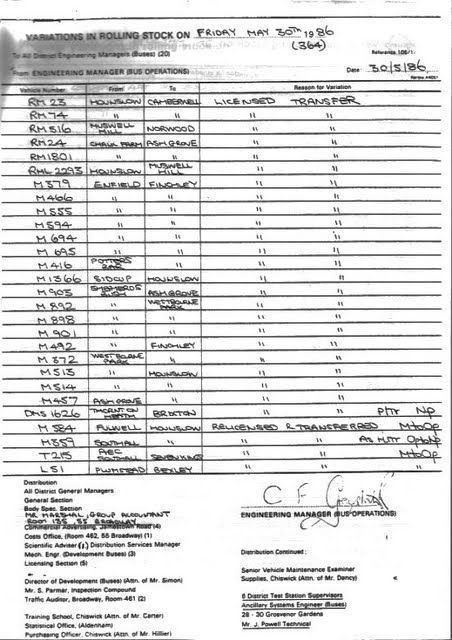 VARIATIONS IN ROLLING STOCK ON FRIDAY MAY 30TH 1986
(364)
To All District Engineering Managers (Buses) (20)
Reference 106/1
From ENGINEERING MANAGER (BUS OPERATIONS)
Date 30/5/86
Vehicle Number From To Reason for Variation
RM 23 HOUNSLOW CAMBERWELL LICENSED TRANSFER
RM 74 " " " "
RM 516 MUSWELL HILL NORWOOD " "
RM 24 CHALK FARM ASH GROVE " "
RM 1801 " " " "
RML 2293 HOUNSLOW MUSWELL HILL " "
M 379 ENFIELD FINCHLEY " "
M 466 " " " "
M 555 " " " "
M 594 " " " "
M 694 " " " "
M 695 " " " "
M 416 POTTERS BAR " " "
M 1366 SIDCUP HOUNSLOW " "
M 903 SHEPHERDS BUSH ASH GROVE " "
M 892 " WESTBOURNE PARK " "
M 898 " " " "
M 901 " " " "
M 492 " FINCHLEY " "
M 372 WESTBOURNE PARK " " "
M 513 " HOUNSLOW " "
M 514 " " " "
M 457 ASH GROVE " " "
DMS 1626 THORNTON HEATH BRIXTON " " Np
M 584 FULWELL HOUNSLOW RELICENSED & TRANSFERRED MtoOp
M 359 SOUTHALL " " " OptoNp
T 215 AEC SOUTHALL SEVEN KINGS " " MtoOp
LS 1 PLUMSTEAD BEXLEY " " "
Distribution
All District General Managers
General Section
Body Spec. Section
MR MARSHAL, GROUP ACCOUNTANT
ROOM 135, 55 BROADWAY
Commercial Advertising, Jamestown Road (4)
Costs Office, (Room 462, 55 Broadway) (1)
Scientific Adviser (1) Distribution Services Manager
Mech. Engr. (Development Buses) (3)
Licensing Section (5)
Director of Development (Buses) (Attn. of Mr. Simon)
Mr. S. Parmar, Inspection Compound
Traffic Auditor, Broadway, Room 461 (2)
Training School, Chiswick (Attn. of Mr. Carter)
Statistical Office, (Aldenham)
Purchasing Officer, Chiswick (Attn. of Mr. Hillier)
ENGINEERING MANAGER (BUS OPERATIONS)
Distribution Continued :
Senior Vehicle Maintenance Examiner
Supplies, Chiswick (Attn. of Mr. Dancy)
6 District Test Station Supervisors
Ancillary Systems Engineer (Buses)
28 - 30 Grosvenor Gardens
Mr. J. Powell Technical